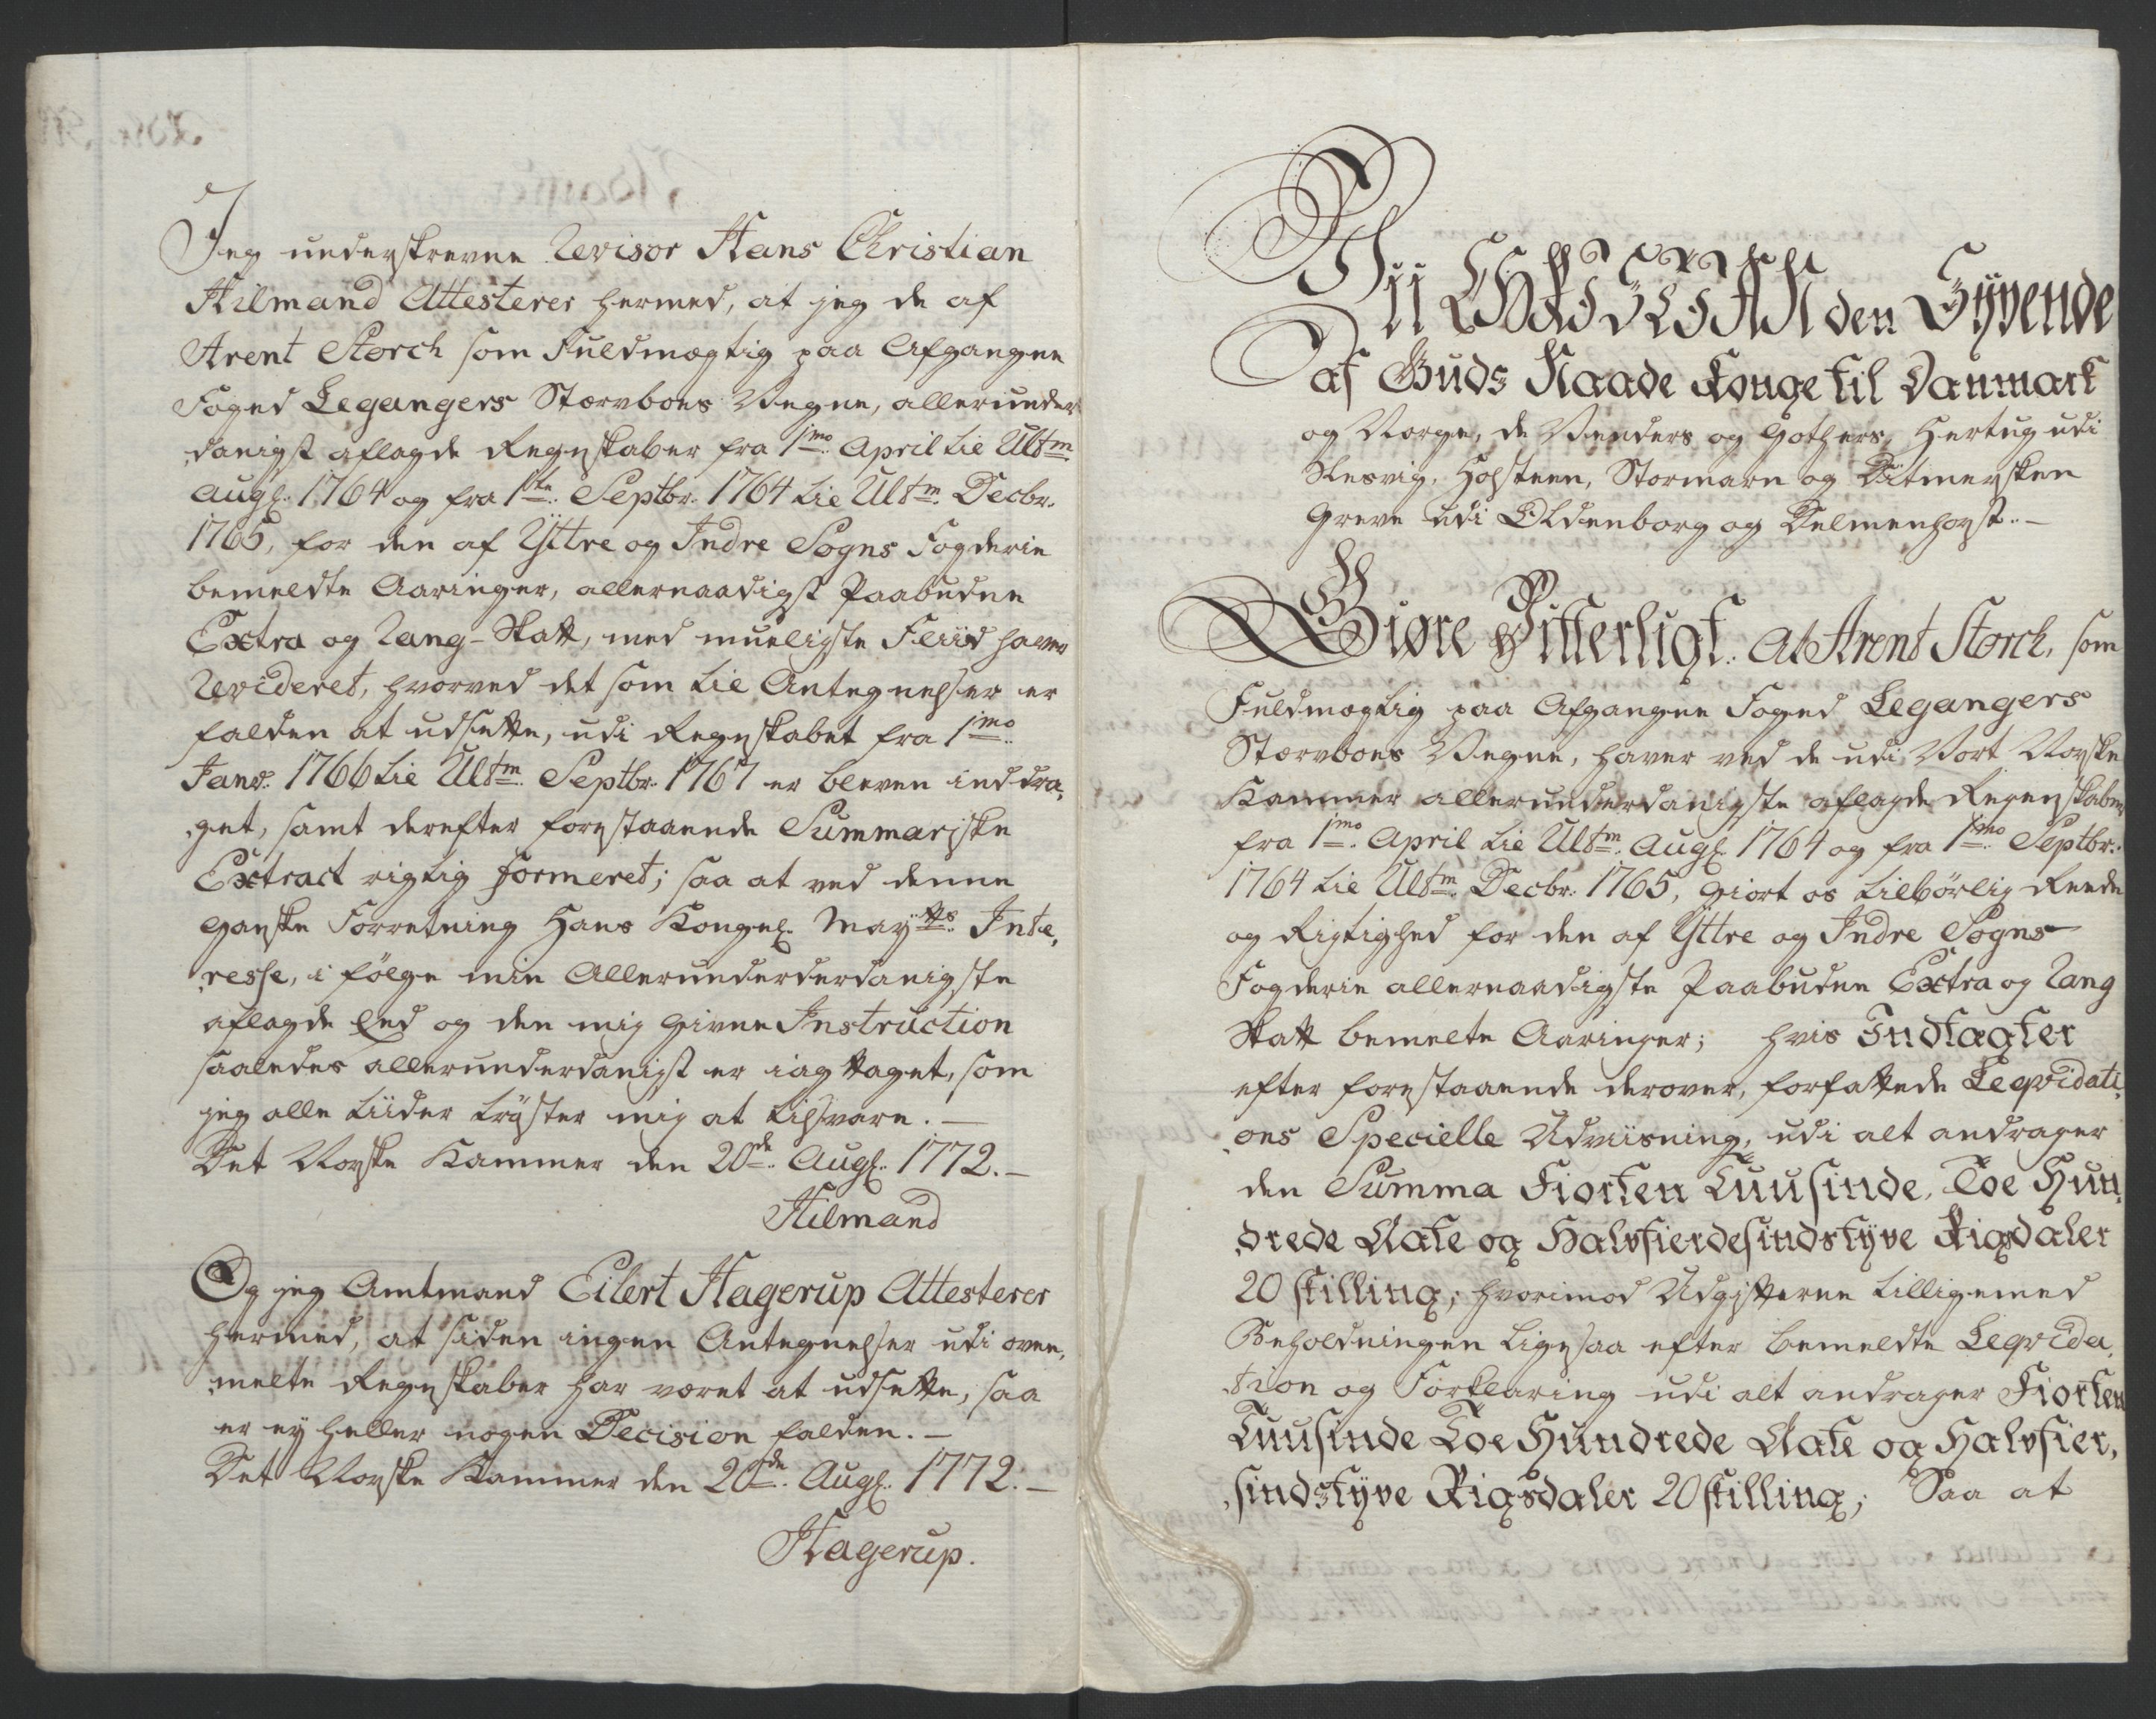 Jeg underskrevne Revisor Hans Christian
Hilmand Attesterer hermed, at jeg de af
Arent Storch som Fuldmægtig paa Afgangne
Foged Legangers Stærvboes Vegne, allerunder
danigst aflagde Regnskaber fra 1mo April til Ultm
Augs. 1764 og fra 1ste Septbr. 1764 til Ultm. Decbr.
1765, for den af Yttre og Indre Sogns Fogderie
bemeldte Aaringer, allernaadigst Paabudne
Extra og Rang-Skatt, med mueligste Fliid haver
Revideret, hvorved det som til Antegnelser er
falden at udsette, udi Regnskabet fra 1mo.
Janv. 1766 til Ultm. Septbr. 1767 er bleven inddra,
,get, samt derefter forestaaende Summariske
Extract rigtig formeret; saa at ved denne
ganske Forretning Hans Kongel. Mayts. Inte,
,resse, i følge min Allerunderderdanigste
aflagde Eed og den mig givne Instruction
saaledes allerunderdanigst er iagttaget, som
jeg alle Tiider trøster mig at tilsvare. —
Det Norske Kammer den 20de. Augs. 1772. —
Hilmand
Og jeg Amtmand Eilert Hagerup Attesterer
hermed, at siden ingen Antegnelser udi oven,
,melte Regnskaber har været at udsette, saa
er ey heller nogen Decision falden. —
Det Norske Kammer den 20de. Augs. 1772. —
Hagerup.
Vii CHRISTIAN den Syvende
af Guds Naade Konge til Danmark
og Norge, de Venders og Gothers, Hertug udi
Slesvig, Holsteen, Stormarn og Ditmersken
Greve udi Oldenborg og Delmenhorst. —
Giøre Vitterligt. At Arent Storch, som
Fuldmægtig paa Afgangne Foged Legangers
Stærvboes Vegne, haver ved de udi Vort Norske
Kammer allerunderdanigste aflagde Regenskaber
fra 1mo. April til Ultm. Augs. 1764 og fra 1mo. Septbr.
1764 til Ultm. Decbr. 1765, giort os tilbørlig Reede
og Rigtighed for den af Yttre og Indre Sogns
Fogderie allernaadigste Paabudne Extra og Rang
Skatt bemelte Aaringer; hvis Indtægter
efter forestaaende derover, forfattede Leqvidati,
,ons Specielle Udviisning, udi alt andrager
den Summa Fiorten Tuusinde, Toe Hun,
,drede Aate og Halvfierdesindstyve Rigsdaler
20 skilling; hvorimod Udgifterne tilligemed
Beholdningen ligesaa efter bemeldte Leqvida,
,tion og Forklaring udi alt andrager Fiorten
Tuusinde Toe Hundrede Aate og Halvfier,
,sindstyve Rigsdaler 20 skilling; Saa at